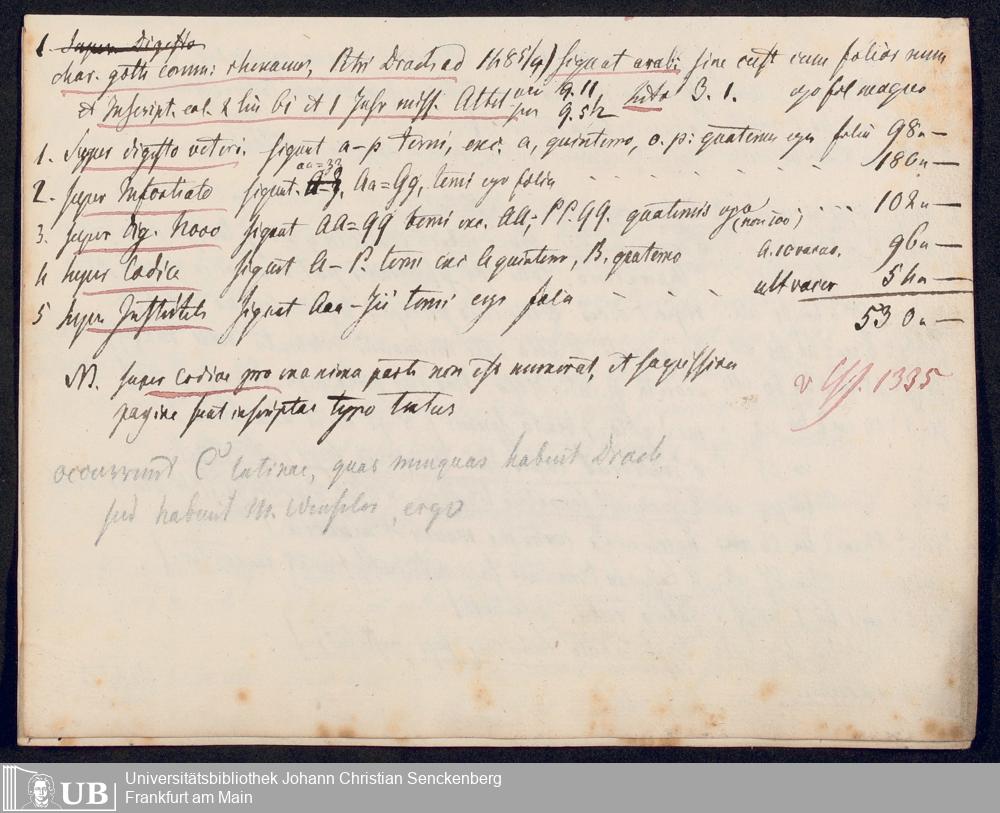 1 Super Digesto
char. goth comm: rhenanus, Petri Drach ad 1485/4) signat arabi sine cust cum folior num
et Inscript. col. 2 lin bi et 1 Infr miss. Altit 9.11 9.5½ lato 3.1. ergo fol magno
1. Super digesto veteri. signat a–p terni, exc. a, quinterno, o.p: quaternis ergo folia 98 –
2. super Infortiato signat. aa=33 Aa=Gg, terni ergo folia 180 –
3. super dig. Novo signat AA=QQ terni exc. AA, PP.QQ. quaternis ergo (non 100; 102 –
4 super Codice signat A–P. terni exc A quinterno, B. quaterno a. 10 vacuo. 96 –
5 super Institutis signat Aaa–Iii terni ergo folia ult vacat 54 –
530 –
N. super codice pro maxima parte non est numerat, et saepissime
paginae sunt inscriptae typo textus
v Gf. 1335
occurrunt C latinae, quas nunquam habuit Drach
sed habuit M. Wenssler, ergo
UB
Universitätsbibliothek Johann Christian Senckenberg
Frankfurt am Main